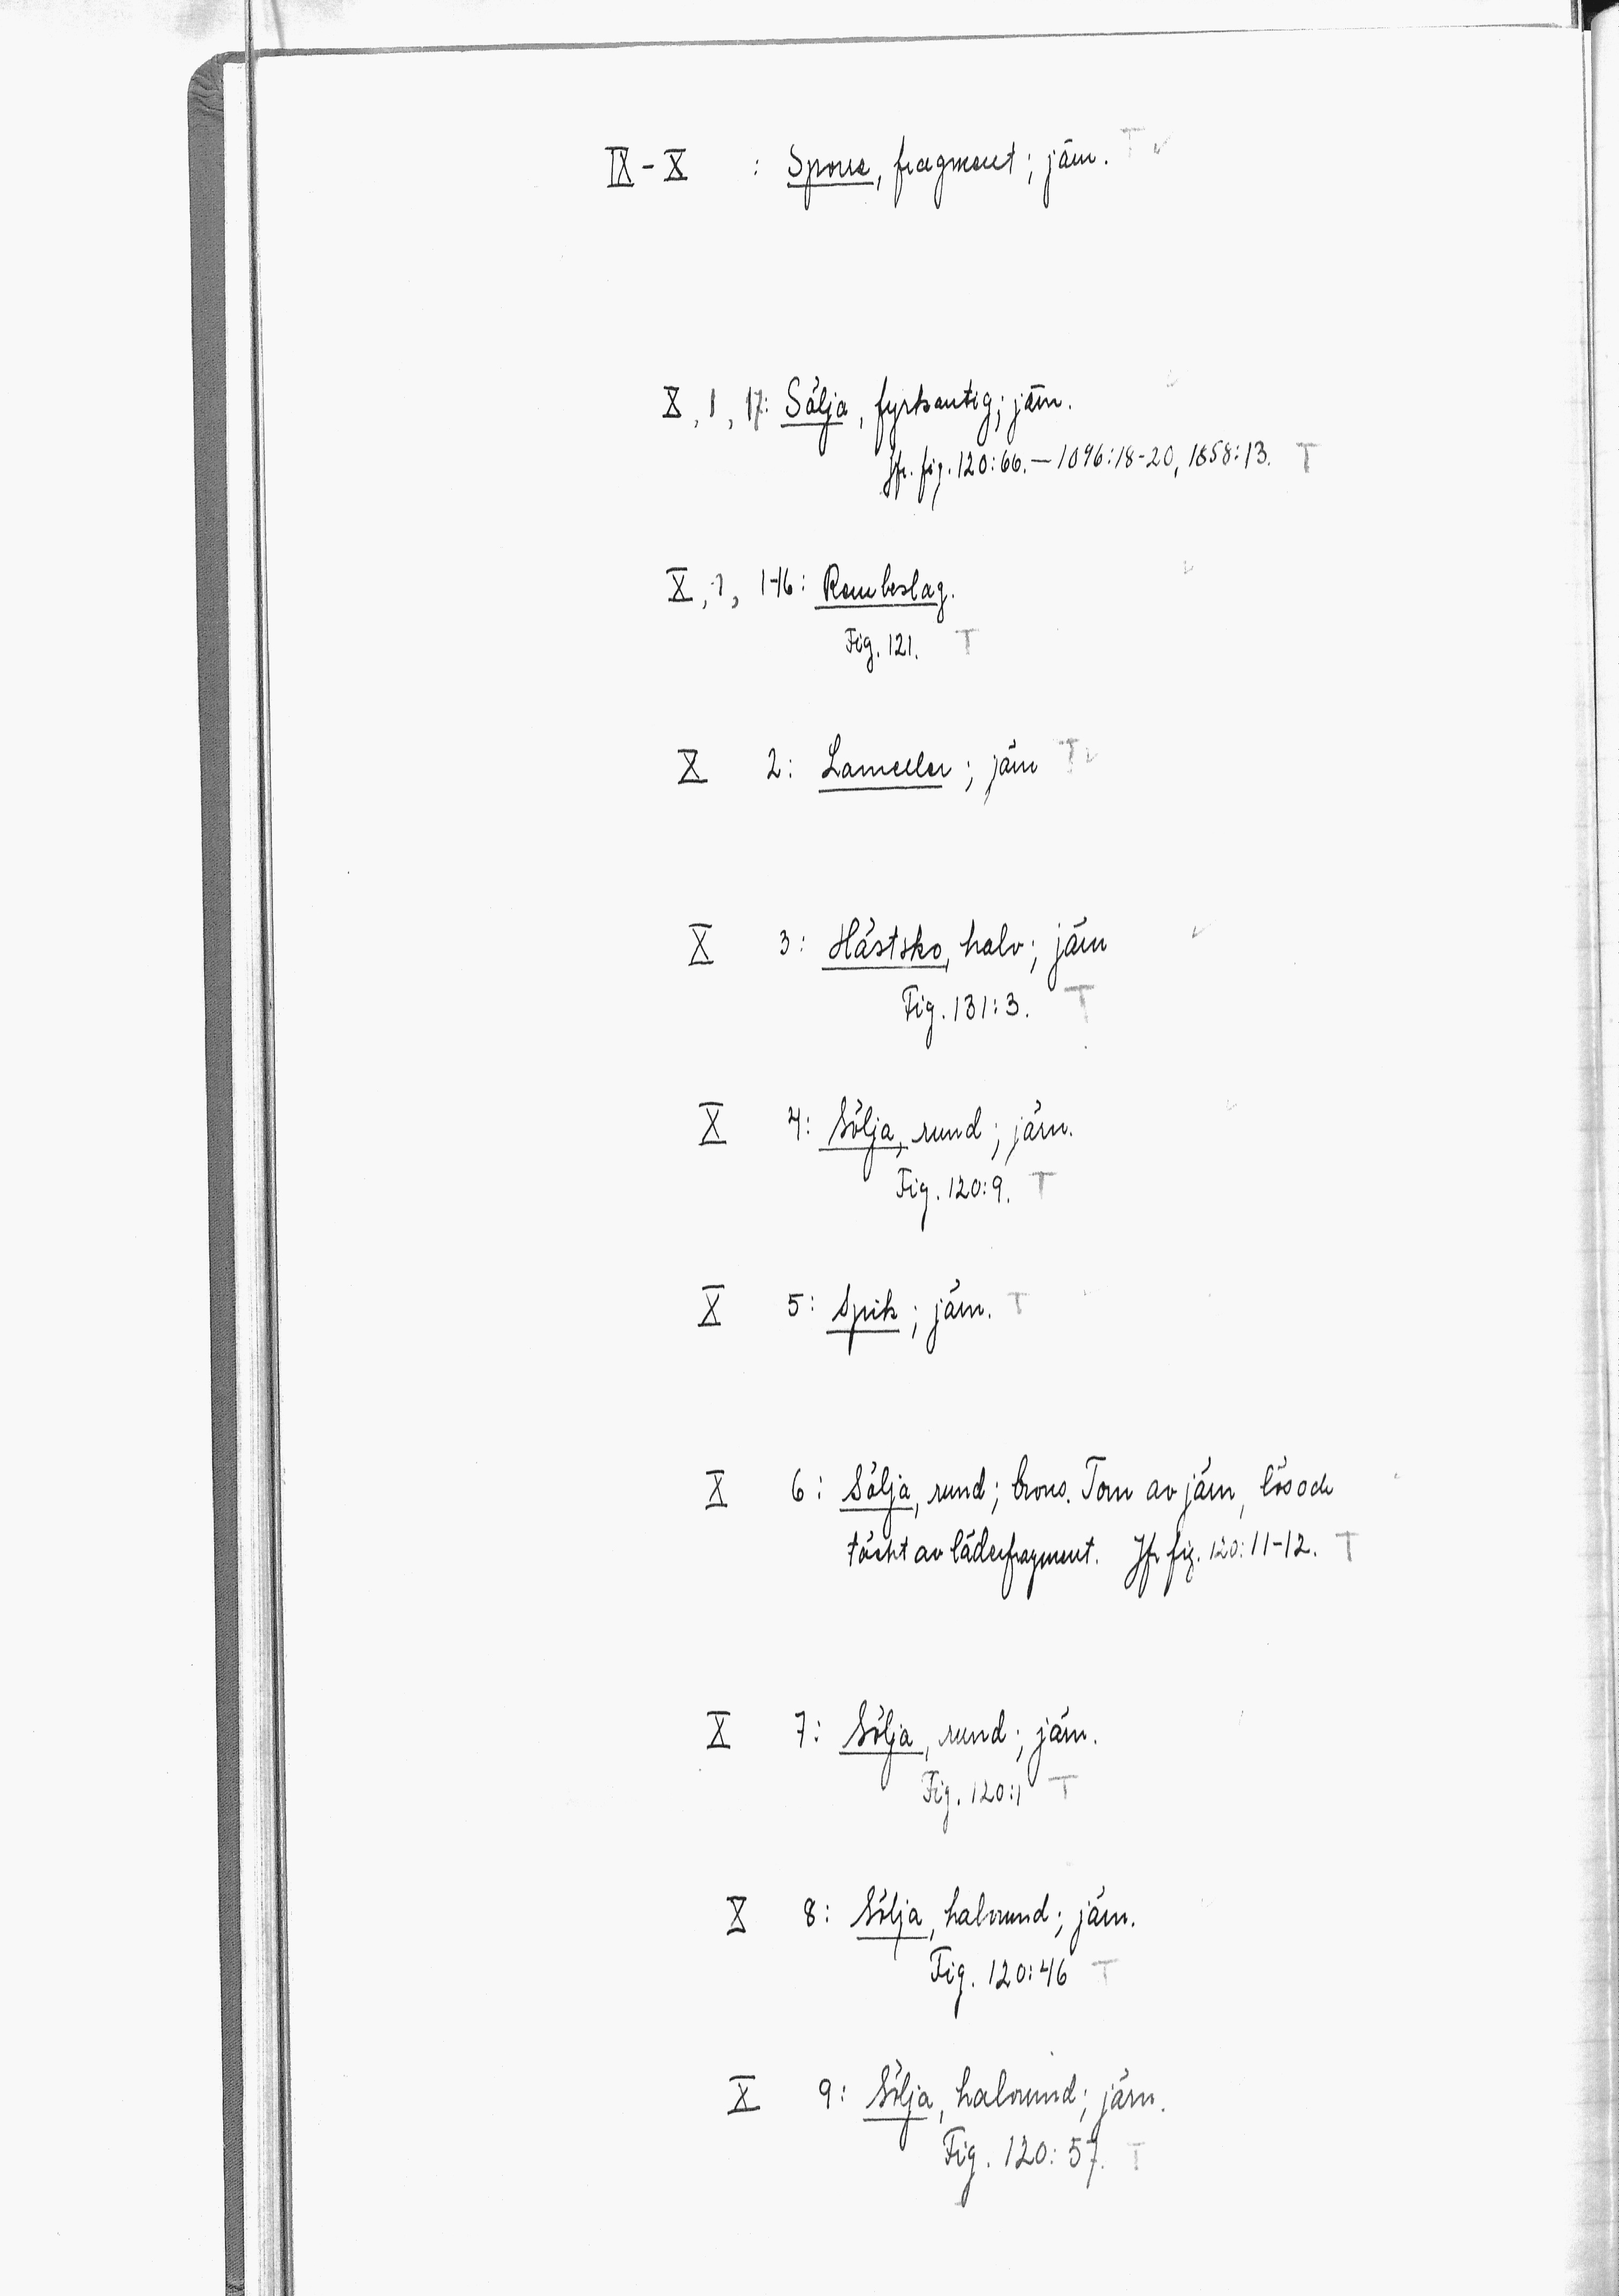 IX - X : Sporre, fragment; järn. T
X, 1, 17: Sölja, fyrkantig; järn.
Jfr. fig. 120:66. — 1096:18-20, 1858:13. T
X, 1, 1-16: Rembeslag.
Fig. 121. T
X 2: Lameller; järn T
X 3: Hästsko, halv; järn
Fig. 131:3. T
X 4: Sölja, rund; järn.
Fig. 120:9. T
X 5: Spik; järn. T
X 6: Sölja, rund; brons. Torn av järn, lös och
täckt av läderfragment. Jfr fig. 120:11-12. T
X 7: Sölja, rund; järn.
Fig. 120:1 T
X 8: Sölja, halvrund; järn.
Fig. 120:46 T
X 9: Sölja, halvrund; järn.
Fig. 120:57. T